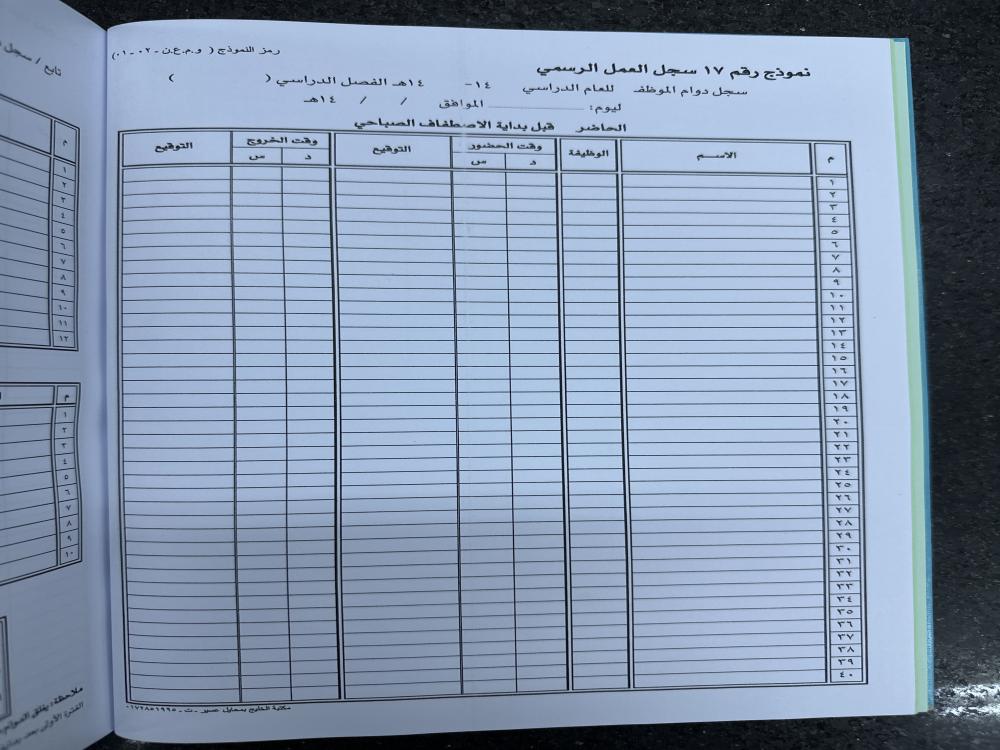 رمز النموذج ( و.م.ع.ن - ٠٢ - ٠١)
نموذج رقم ١٧ سجل العمل الرسمي
سجل دوام الموظف للعام الدراسي ١٤ - ١٤هـ الفصل الدراسي ( )
ليوم: الموافق / / ١٤هـ
الحاضر قبل بداية الاصطفاف الصباحي
م الاسم الوظيفة وقت الحضور التوقيع وقت الخروج التوقيع
د س د س
١
٢
٣
٤
٥
٦
٧
٨
٩
١٠
١١
١٢
١٣
١٤
١٥
١٦
١٧
١٨
١٩
٢٠
٢١
٢٢
٢٣
٢٤
٢٥
٢٦
٢٧
٢٨
٢٩
٣٠
٣١
٣٢
٣٣
٣٤
٣٥
٣٦
٣٧
٣٨
٣٩
٤٠
مكتبة الخليج بمحايل عسير - ت - ٠١٧٢٨٥١٩٩٥
تابع / سجل
م
١
٢
٣
٤
٥
٦
٧
٨
٩
١٠
١١
١٢
م
١
٢
٣
٤
٥
٦
٧
٨
٩
١٠
ملاحظة: يغلق الدوام
الفترة الأولى بعد